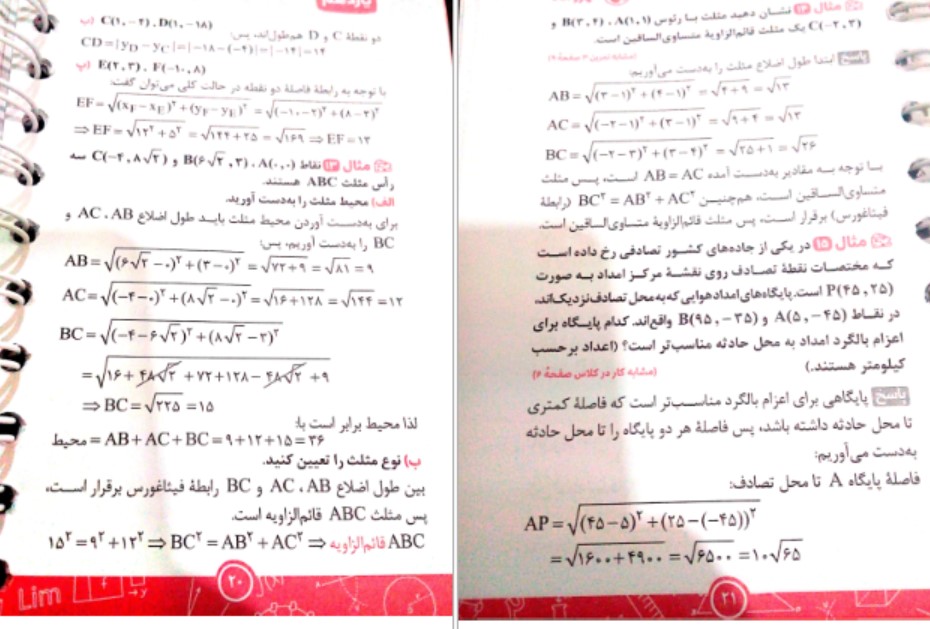 یازدهم
پ) C(۱,-۴) ، D(۱,-۱۸)
دو نقطهٔ C و D هم‌طول‌اند، پس:
CD=|yD-yC|=|-۱۸-(-۴)|=|-۱۴|=۱۴
ت) E(۲,۳) ، F(-۱۰,۸)
با توجه به رابطهٔ فاصلهٔ دو نقطه در حالت کلی می‌توان گفت:
EF=√((xF-xE)²+(yF-yE)²)=√((-۱۰-۲)²+(۸-۳)²)
⇒EF=√(۱۲²+۵²)=√(۱۴۴+۲۵)=√۱۶۹⇒EF=۱۳
مثال ۱۳ نقاط A(۰,۰) ، B(۶√۲,۳) و C(-۴,۸√۲) سه
رأس مثلث ABC هستند.
الف) محیط مثلث را به‌دست آورید.
برای به‌دست آوردن محیط مثلث باید طول اضلاع AB ، AC و
BC را به‌دست آوریم، پس:
AB=√((۶√۲-۰)²+(۳-۰)²)=√(۷۲+۹)=√۸۱=۹
AC=√((-۴-۰)²+(۸√۲-۰)²)=√(۱۶+۱۲۸)=√۱۴۴=۱۲
BC=√((-۴-۶√۲)²+(۸√۲-۳)²)
=√(۱۶+۴۸√۲+۷۲+۱۲۸-۴۸√۲+۹)
⇒BC=√۲۲۵=۱۵
لذا محیط برابر است با:
محیط=AB+AC+BC=۹+۱۲+۱۵=۳۶
ب) نوع مثلث را تعیین کنید.
بین طول اضلاع AB ، AC و BC رابطهٔ فیثاغورس برقرار است،
پس مثلث ABC قائم‌الزاویه است.
۱۵²=۹²+۱۲²⇒BC²=AB²+AC²⇒ قائم‌الزاویه ABC
۲۰
Lim
مثال ۱۴ نشان دهید مثلث با رئوس A(۱,۱) ، B(۳,۴) و
C(-۲,۳) یک مثلث قائم‌الزاویهٔ متساوی‌الساقین است.
(مشابه تمرین ۳ صفحهٔ ۹)
پاسخ ابتدا طول اضلاع مثلث را به‌دست می‌آوریم:
AB=√((۳-۱)²+(۴-۱)²)=√(۴+۹)=√۱۳
AC=√((-۲-۱)²+(۳-۱)²)=√(۹+۴)=√۱۳
BC=√((-۲-۳)²+(۳-۴)²)=√(۲۵+۱)=√۲۶
با توجه به مقادیر به‌دست آمده AB=AC است، پس مثلث
متساوی‌الساقین است، هم‌چنین BC²=AB²+AC² (رابطهٔ
فیثاغورس) برقرار است، پس مثلث قائم‌الزاویه متساوی‌الساقین است.
مثال ۱۵ در یکی از جاده‌های کشور تصادفی رخ داده است
که مختصات نقطهٔ تصادف روی نقشهٔ مرکز امداد به صورت
P(۴۵,۲۵) است. پایگاه‌های امداد هوایی که به محل تصادف نزدیک‌اند،
در نقاط A(۵,-۴۵) و B(۹۵,-۳۵) واقع‌اند. کدام پایگاه برای
اعزام بالگرد امداد به محل حادثه مناسب‌تر است؟ (اعداد برحسب
کیلومتر هستند.)
(مشابه کار در کلاس صفحهٔ ۶)
پاسخ پایگاهی برای اعزام بالگرد مناسب‌تر است که فاصلهٔ کمتری
تا محل حادثه داشته باشد، پس فاصلهٔ هر دو پایگاه را تا محل حادثه
به‌دست می‌آوریم:
فاصلهٔ پایگاه A تا محل تصادف:
AP=√((۴۵-۵)²+(۲۵-(-۴۵))²)
=√(۱۶۰۰+۴۹۰۰)=√۶۵۰۰=۱۰√۶۵
۲۱